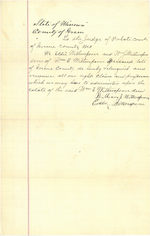 State of Missouri
County of Greene
To the Judge of Probate Court
of Greene County Mo
We Eddie Witherspoon and Wm J Witherspoon
sons of Wm E Witherspoon Deceased late
of Greene County do hereby relinquish and
renounce all our right claim and preference
which we may have to administer upon the
estate of the said Wm E Witherspoon dec
William J Witherspoon
Eddie Witherspoon